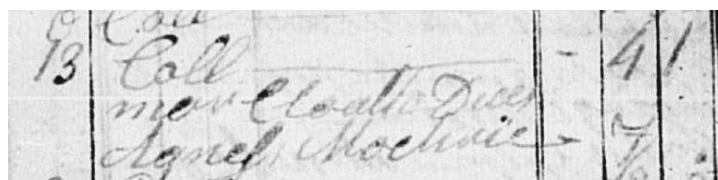 Coll
13 Coll - 41
mor Cloath Dices
Agnes Mochrie 7